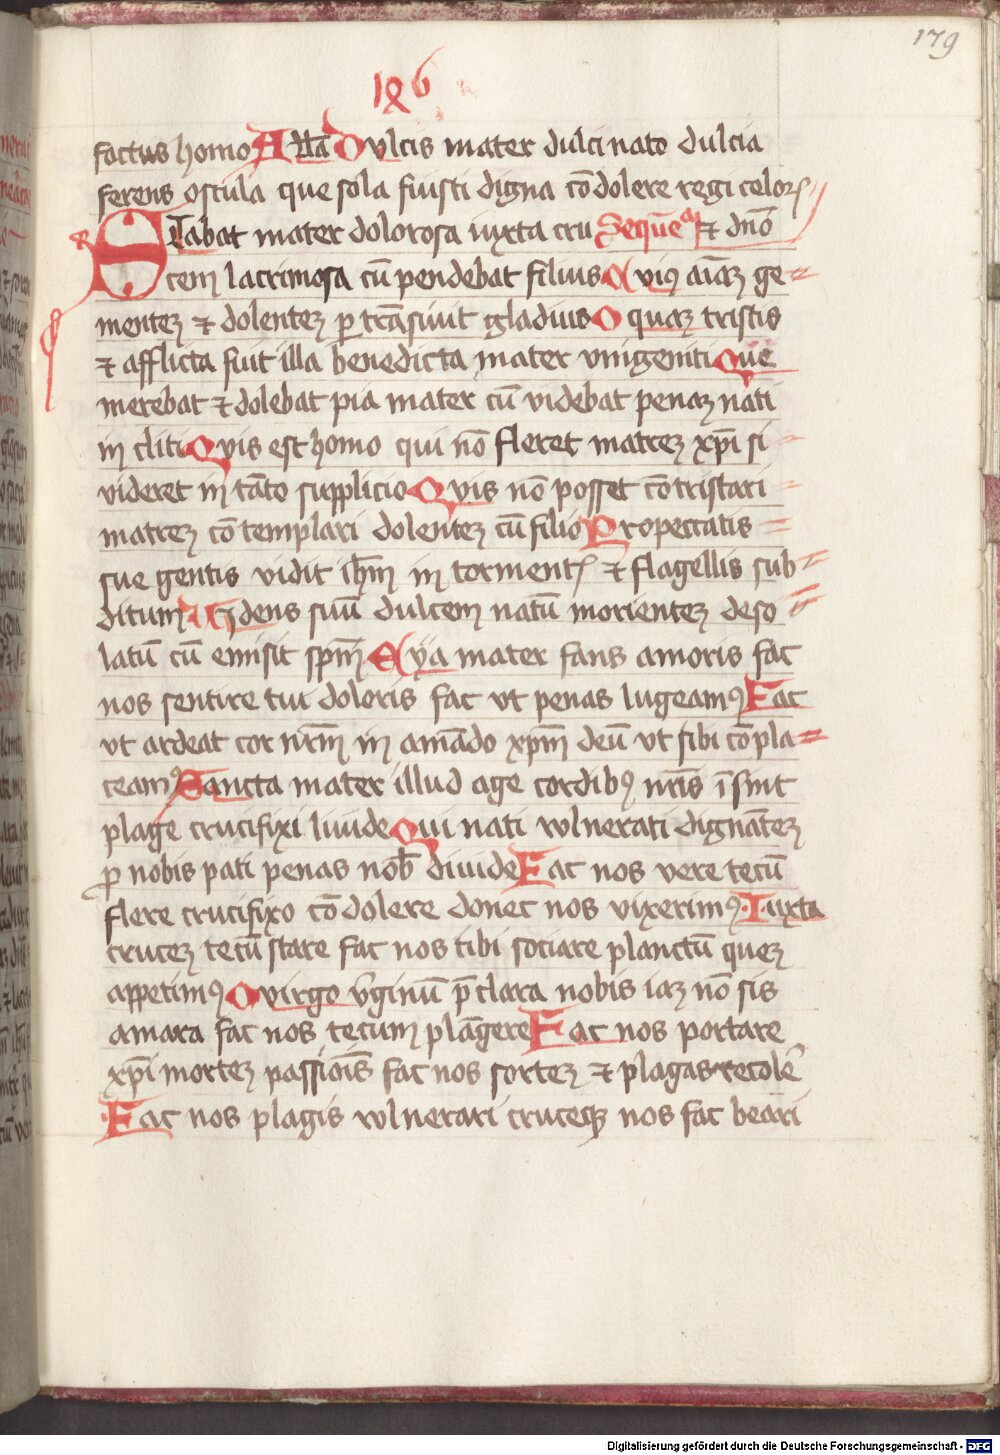 179
186
factus homo Alla Dulcis mater dulci nato dulcia
ferens oscula que sola fuisti digna cōdolere regi celoꝝ
Stabat mater dolorosa iuxta cru Sequēᵃ et dn̄o
cem lacrimosa cū pendebat filius Cuiꝰ aīaꝫ ge=
menteꝫ et dolenteꝫ ꝑtrāsiuit gladius O quaꝫ tristis
et afflicta fuit illa benedicta mater vnigeniti Que
merebat et dolebat pia mater cū videbat penaꝫ nati
in cliti Qvis est homo qui nō fleret matreꝫ xp̄i si
videret in tāto supplicio Qvis nō posset cōtristari
matreꝫ cōtemplari dolenteꝫ cū filio Pro peccatis
sue gentis vidit ih̄m in tormentꝭ et flagellis sub=
ditum Videns suū dulcem natū morienteꝫ deso
latū cū emisit sp̄m Eya mater fans amoris fac
nos sentire tui doloris fac vt penas lugeamꝰ Fac
vt ardeat cor nr̄m in amādo xp̄m deū vt sibi cōpla=
ceamꝰ Sancta mater illud age cordibꝰ nr̄is īsint
plage crucifixi liuide Qui nati vulnerati dignāteꝫ
ꝓ nobis pati penas nob̄ diuide Fac nos vere tecū
flere crucifixo cōdolere donec nos vixerimꝰ Iuxta
cruceꝫ tecū stare fac nos tibi sociare planctū queꝫ
appetimꝰ O virgo v̄ginū p̄clara nobis iaꝫ nō sis
amara fac nos tecum plāgere Fac nos portare
xp̄i morteꝫ passiōis fac nos sorteꝫ et plagas recole᷑
Fac nos plagis vulnerari cruceqꝫ nos fac beāri
Digitalisierung gefördert durch die Deutsche Forschungsgemeinschaft - DFG